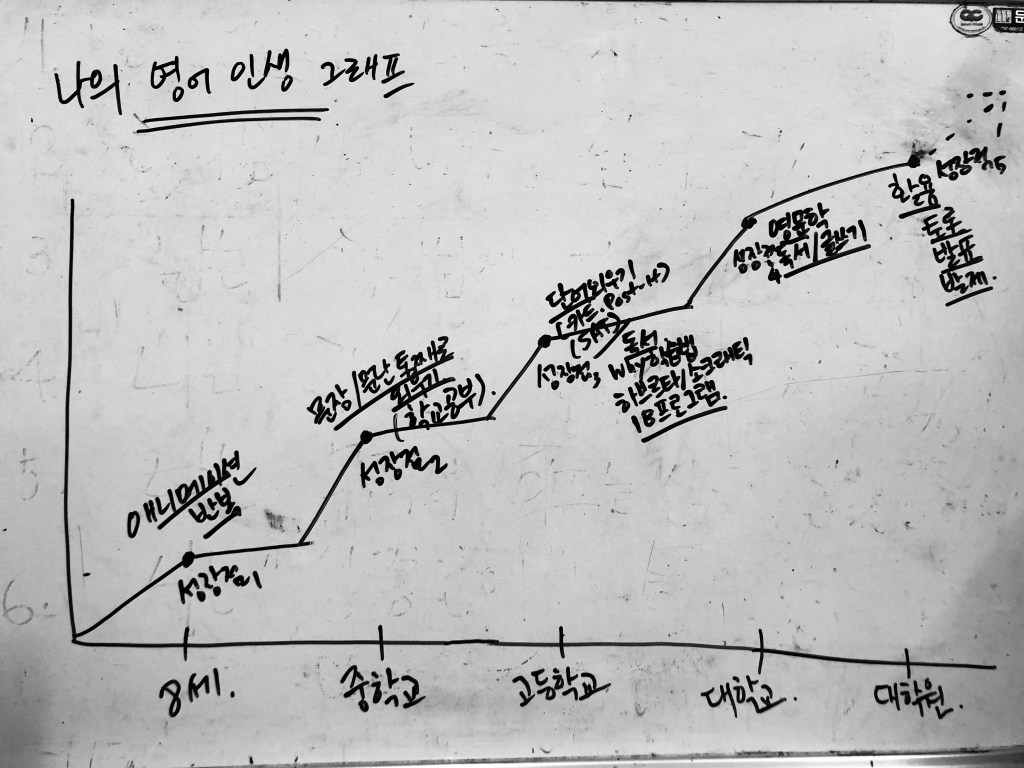 나의 영어 인생 그래프
성장점5
활용
토론
발표
발제.
영문학
성장점4 독서/글쓰기
단어외우기
(카드.Post-it)
(SAT)
성장점3
독서
Why학습법
하브루타/소크라틱
IB프로그램.
문장/문단 통째로
외우기
(학교공부).
성장점2
애니메이션
반복
성장점1
8세.
중학교
고등학교
대학교.
대학원.